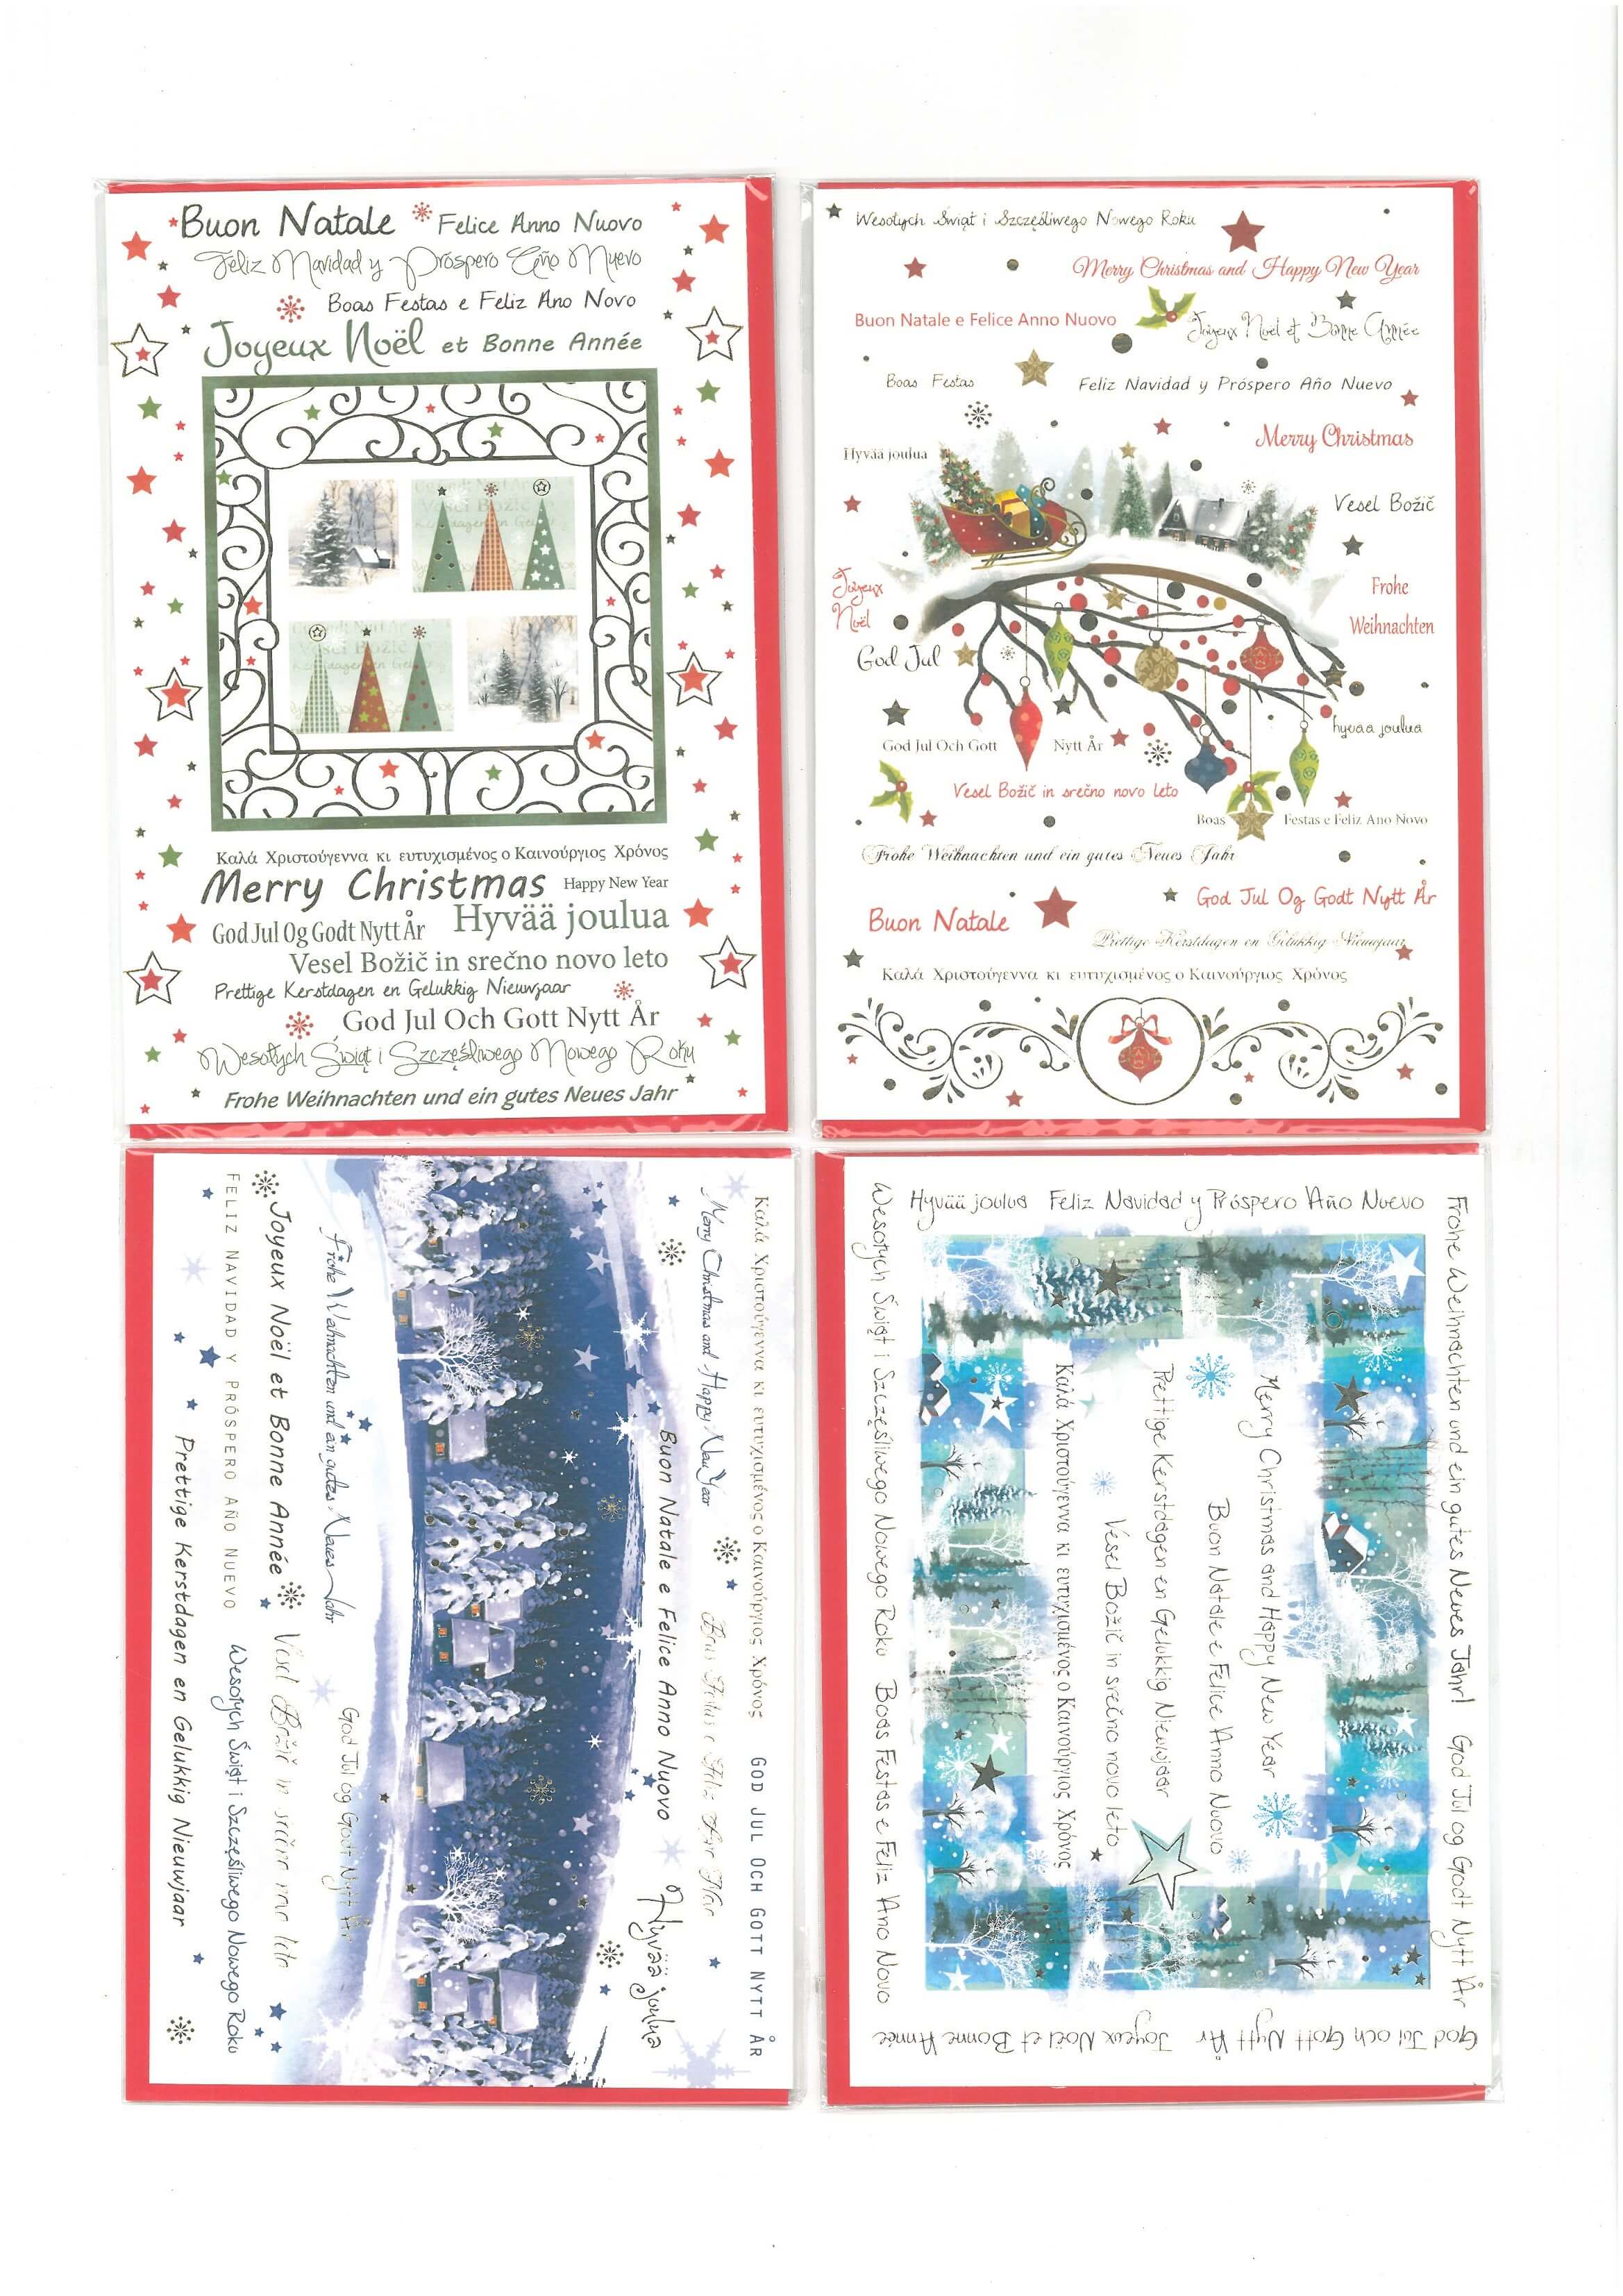 Buon Natale Felice Anno Nuovo
Feliz Navidad y Próspero Año Nuevo
Boas Festas e Feliz Ano Novo
Joyeux Noël et Bonne Année
Καλά Χριστούγεννα κι ευτυχισμένος ο Καινούργιος Χρόνος
Merry Christmas Happy New Year
God Jul Og Godt Nytt År Hyvää joulua
Vesel Božič in srečno novo leto
Prettige Kerstdagen en Gelukkig Nieuwjaar
God Jul Och Gott Nytt År
Wesołych Świąt i Szczęśliwego Nowego Roku
Frohe Weihnachten und ein gutes Neues Jahr
Wesołych Świąt i Szczęśliwego Nowego Roku
Merry Christmas and Happy New Year
Buon Natale e Felice Anno Nuovo
Joyeux Noël et Bonne Année
Boas Festas
Feliz Navidad y Próspero Año Nuevo
Merry Christmas
Hyvää joulua
Vesel Božič
Joyeux
Noël
Frohe
Weihnachten
God Jul
hyvää joulua
God Jul Och Gott Nytt År
Vesel Božič in srečno novo leto
Boas Festas e Feliz Ano Novo
Frohe Weihnachten und ein gutes Neues Jahr
God Jul Og Godt Nytt År
Buon Natale
Prettige Kerstdagen en Gelukkig Nieuwjaar
Καλά Χριστούγεννα κι ευτυχισμένος ο Καινούργιος Χρόνος
Καλά Χριστούγεννα κι ευτυχισμένος ο Καινούργιος Χρόνος God Jul Och Gott Nytt År
Merry Christmas and Happy New Year Boas Festas e Feliz
Buon Natale e Felice Anno Nuovo Hyvää joulua
Frohe Weihnachten und ein gutes Neues Jahr God Jul og Godt Nytt År
Joyeux Noël et Bonne Année Vesel Božič in srečno novo leto
Feliz Navidad y Próspero Año Nuevo Wesołych Świąt i Szczęśliwego Nowego Roku
Prettige Kerstdagen en Gelukkig Nieuwjaar
Frohe Weihnachten und ein gutes Neues Jahr! God Jul og Godt Nytt År
Hyvää joulua Feliz Navidad y Próspero Año Nuevo
Merry Christmas and Happy New Year
Buon Natale e Felice Anno Nuovo
Prettige Kerstdagen en Gelukkig Nieuwjaar
Vesel Božič in srečno novo leto
Καλά Χριστούγεννα κι ευτυχισμένος ο Καινούργιος Χρόνος
God Jul och Gott Nytt År Joyeux Noël et Bonne Année
Wesołych Świąt i Szczęśliwego Nowego Roku Boas Festas e Feliz Ano Novo